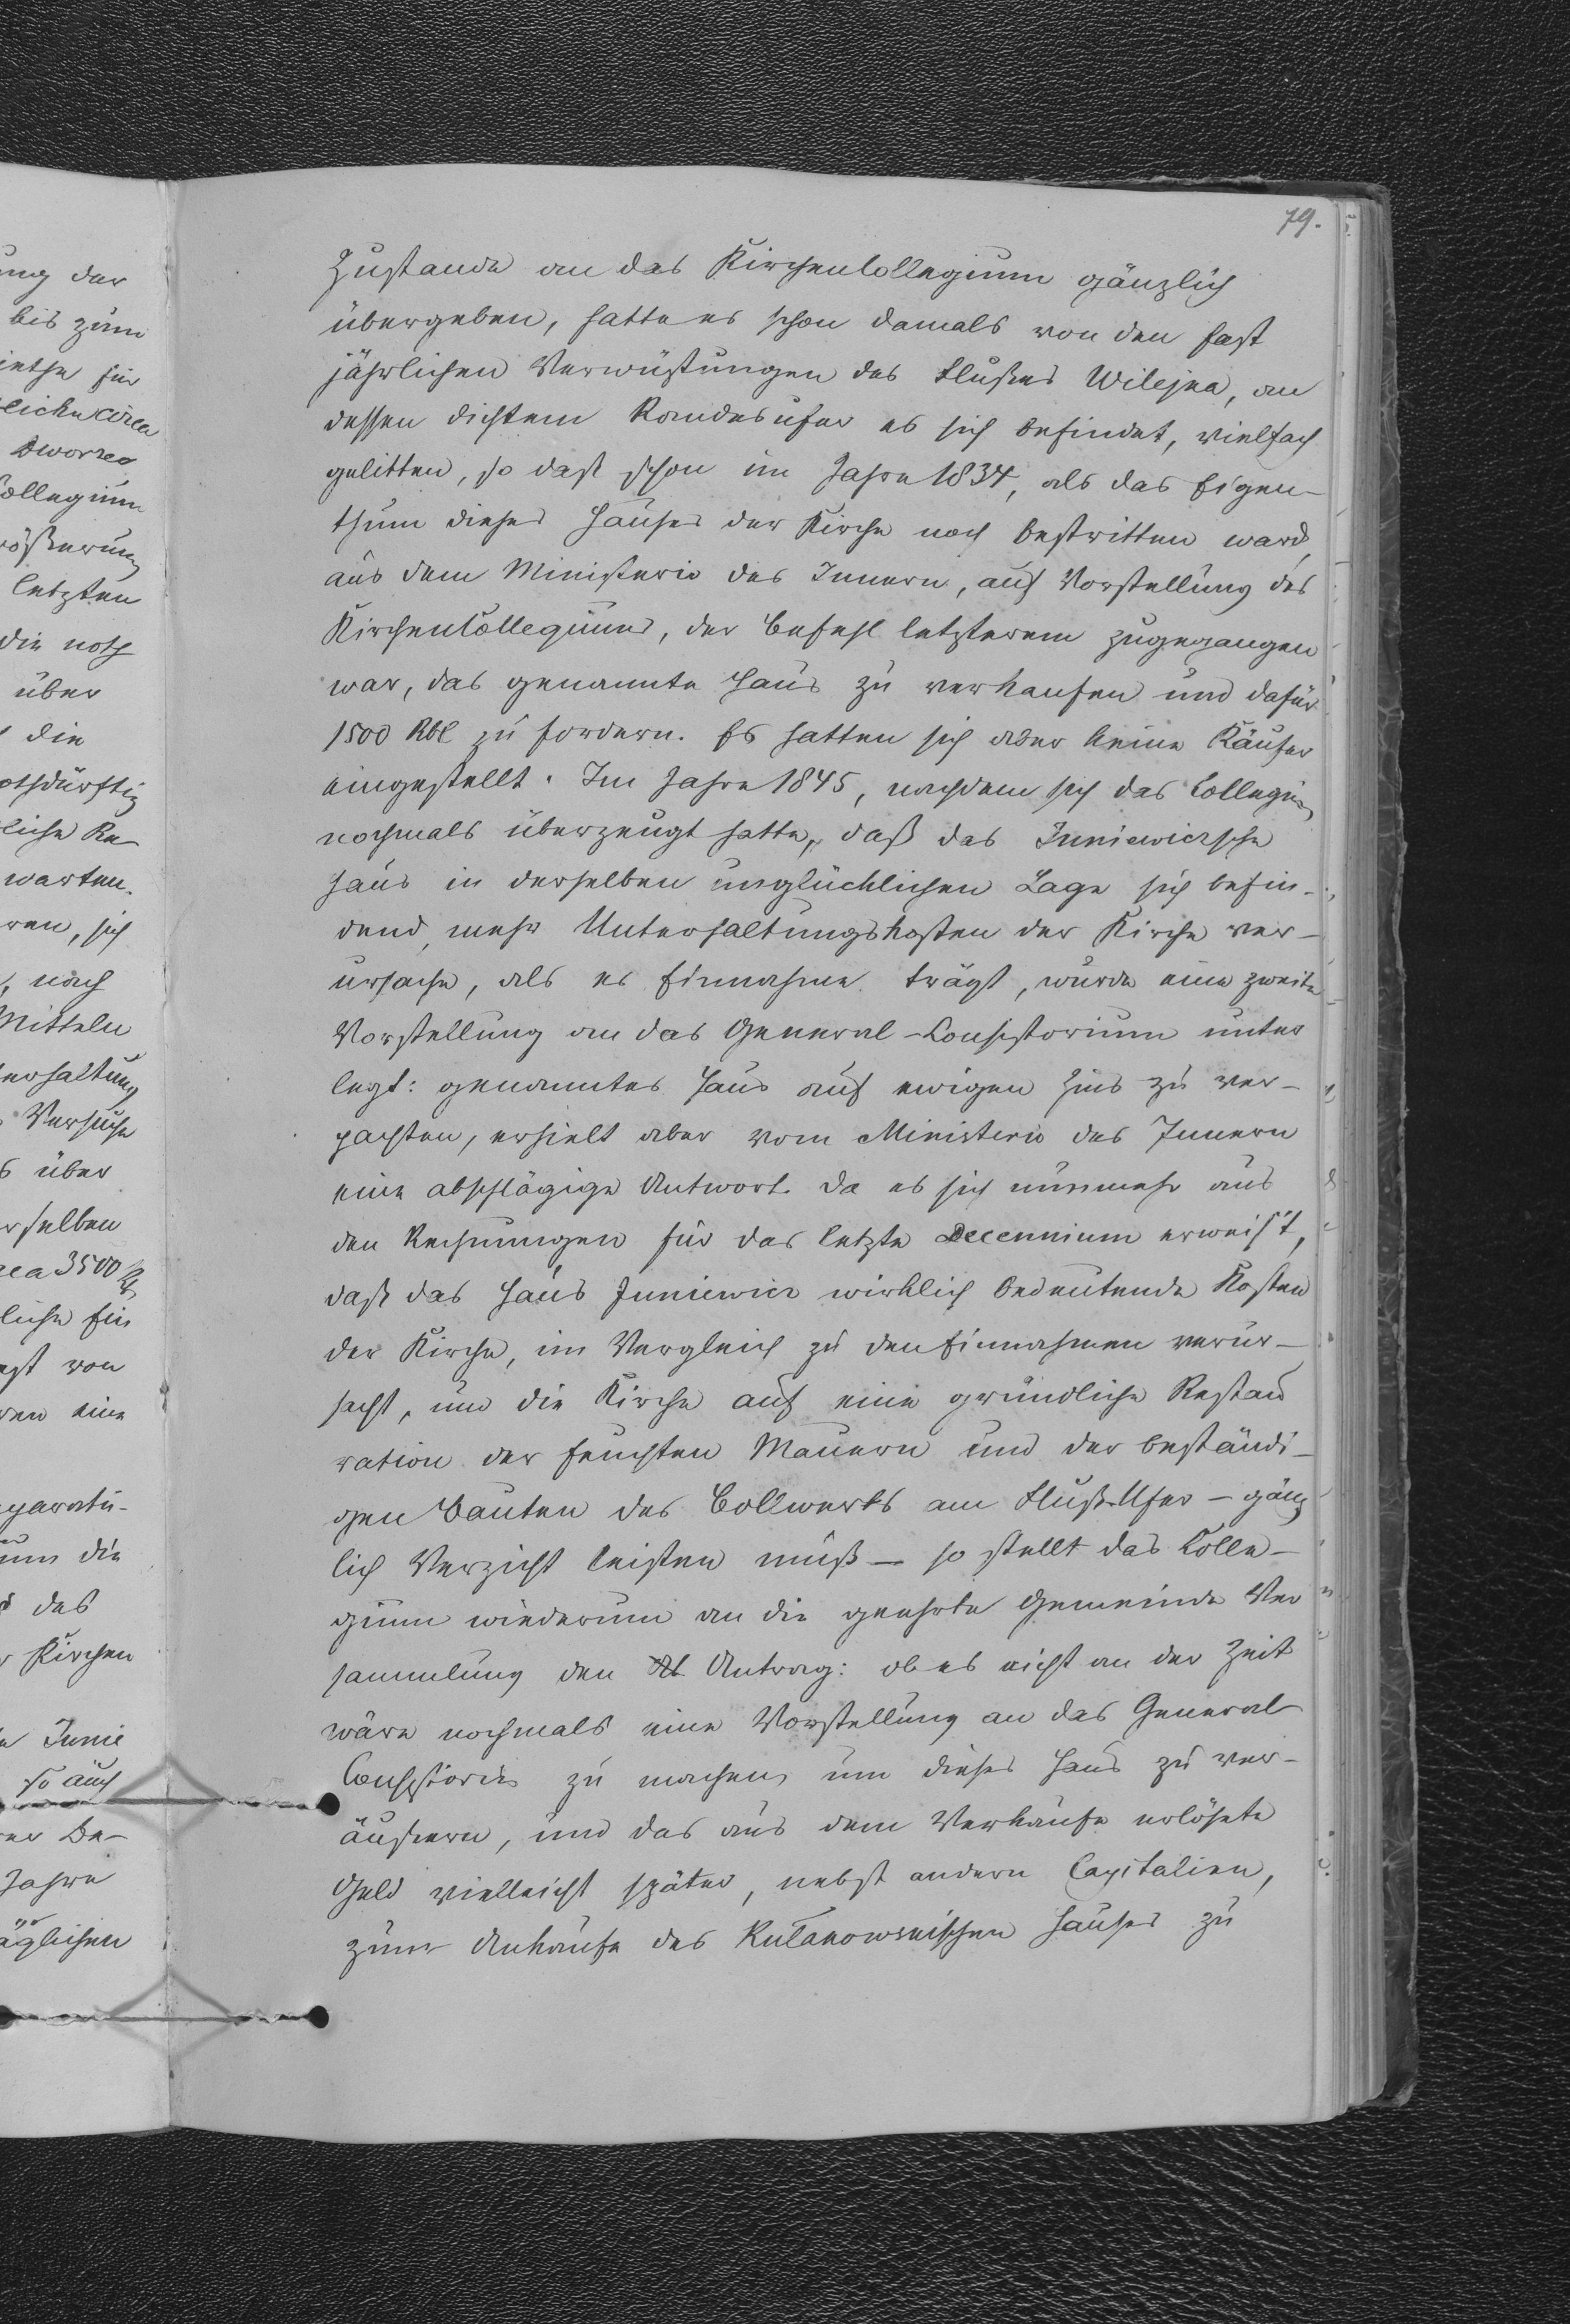 79.
Zustande an das Kirchencollegium gänzlich
übergeben, hatte es schon damals von den fast
jährlichen Verwüstungen des Flußes Wilejka, an
dessen dichtem Randesufer es sich befindet, vielfach
gelitten, so daß schon im Jahre 1834, als das Eigen-
thum dieses Hauses der Kirche noch bestritten ward,
aus dem Ministerio des Innern, auf Vorstellung des
Kirchencollegiums, der Befehl letzterem zugegangen
war, das genannte Haus zu verkaufen und dafür
1500 Rbl zu fordern. Es hatten sich aber keine Käufer
eingestellt. Im Jahre 1845, nachdem sich das Collegium
nochmals überzeugt hatte, daß das Juniewiczsche
Haus in derselben unglücklichen Lage sich befin-
dend, mehr Unterhaltungskosten der Kirche ver-
ursache, als es Einnahme trägt, wurde eine zweite
Vorstellung an das General-Consistorium unter
legt: genanntes Haus auf ewigen Zins zu ver-
pachten, erhielt aber vom Ministerio des Innern
eine abschlägige Antwort. Da es sich nunmehr aus
den Rechnungen für das letzte Decennium erweis't,
daß das Haus Juniewicz wirklich bedeutende Kosten
der Kirche, im Vergleich zu den Einnahmen verur-
sacht, und die Kirche auf eine gründliche Restau
ration der feuchten Mauern und der beständi-
gen Bauten des Bollwerks am Fluß-Ufer - gänz
lich Verzicht leisten muß - so stellt das Colle-
gium wiederum an die geehrte Gemeinde Ver
sammlung den Antrag: ob es nicht an der Zeit
wäre nochmals eine Vorstellung an das General
Consistorium zu machen, um dieses Haus zu ver-
äußern, und das aus dem Verkaufe erlösete
Geld vielleicht später, nebst andern Capitalien,
zum Ankaufe des Hauses zu